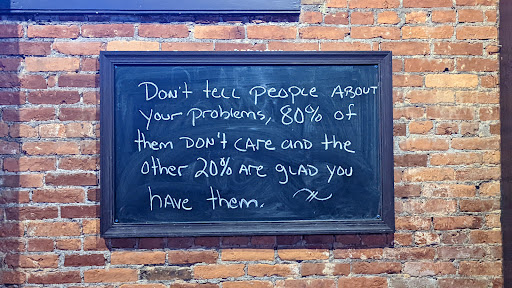 Don't tell people About
your problems, 80% of
them DON't CAre and the
other 20% Are glAD you
hAve them.